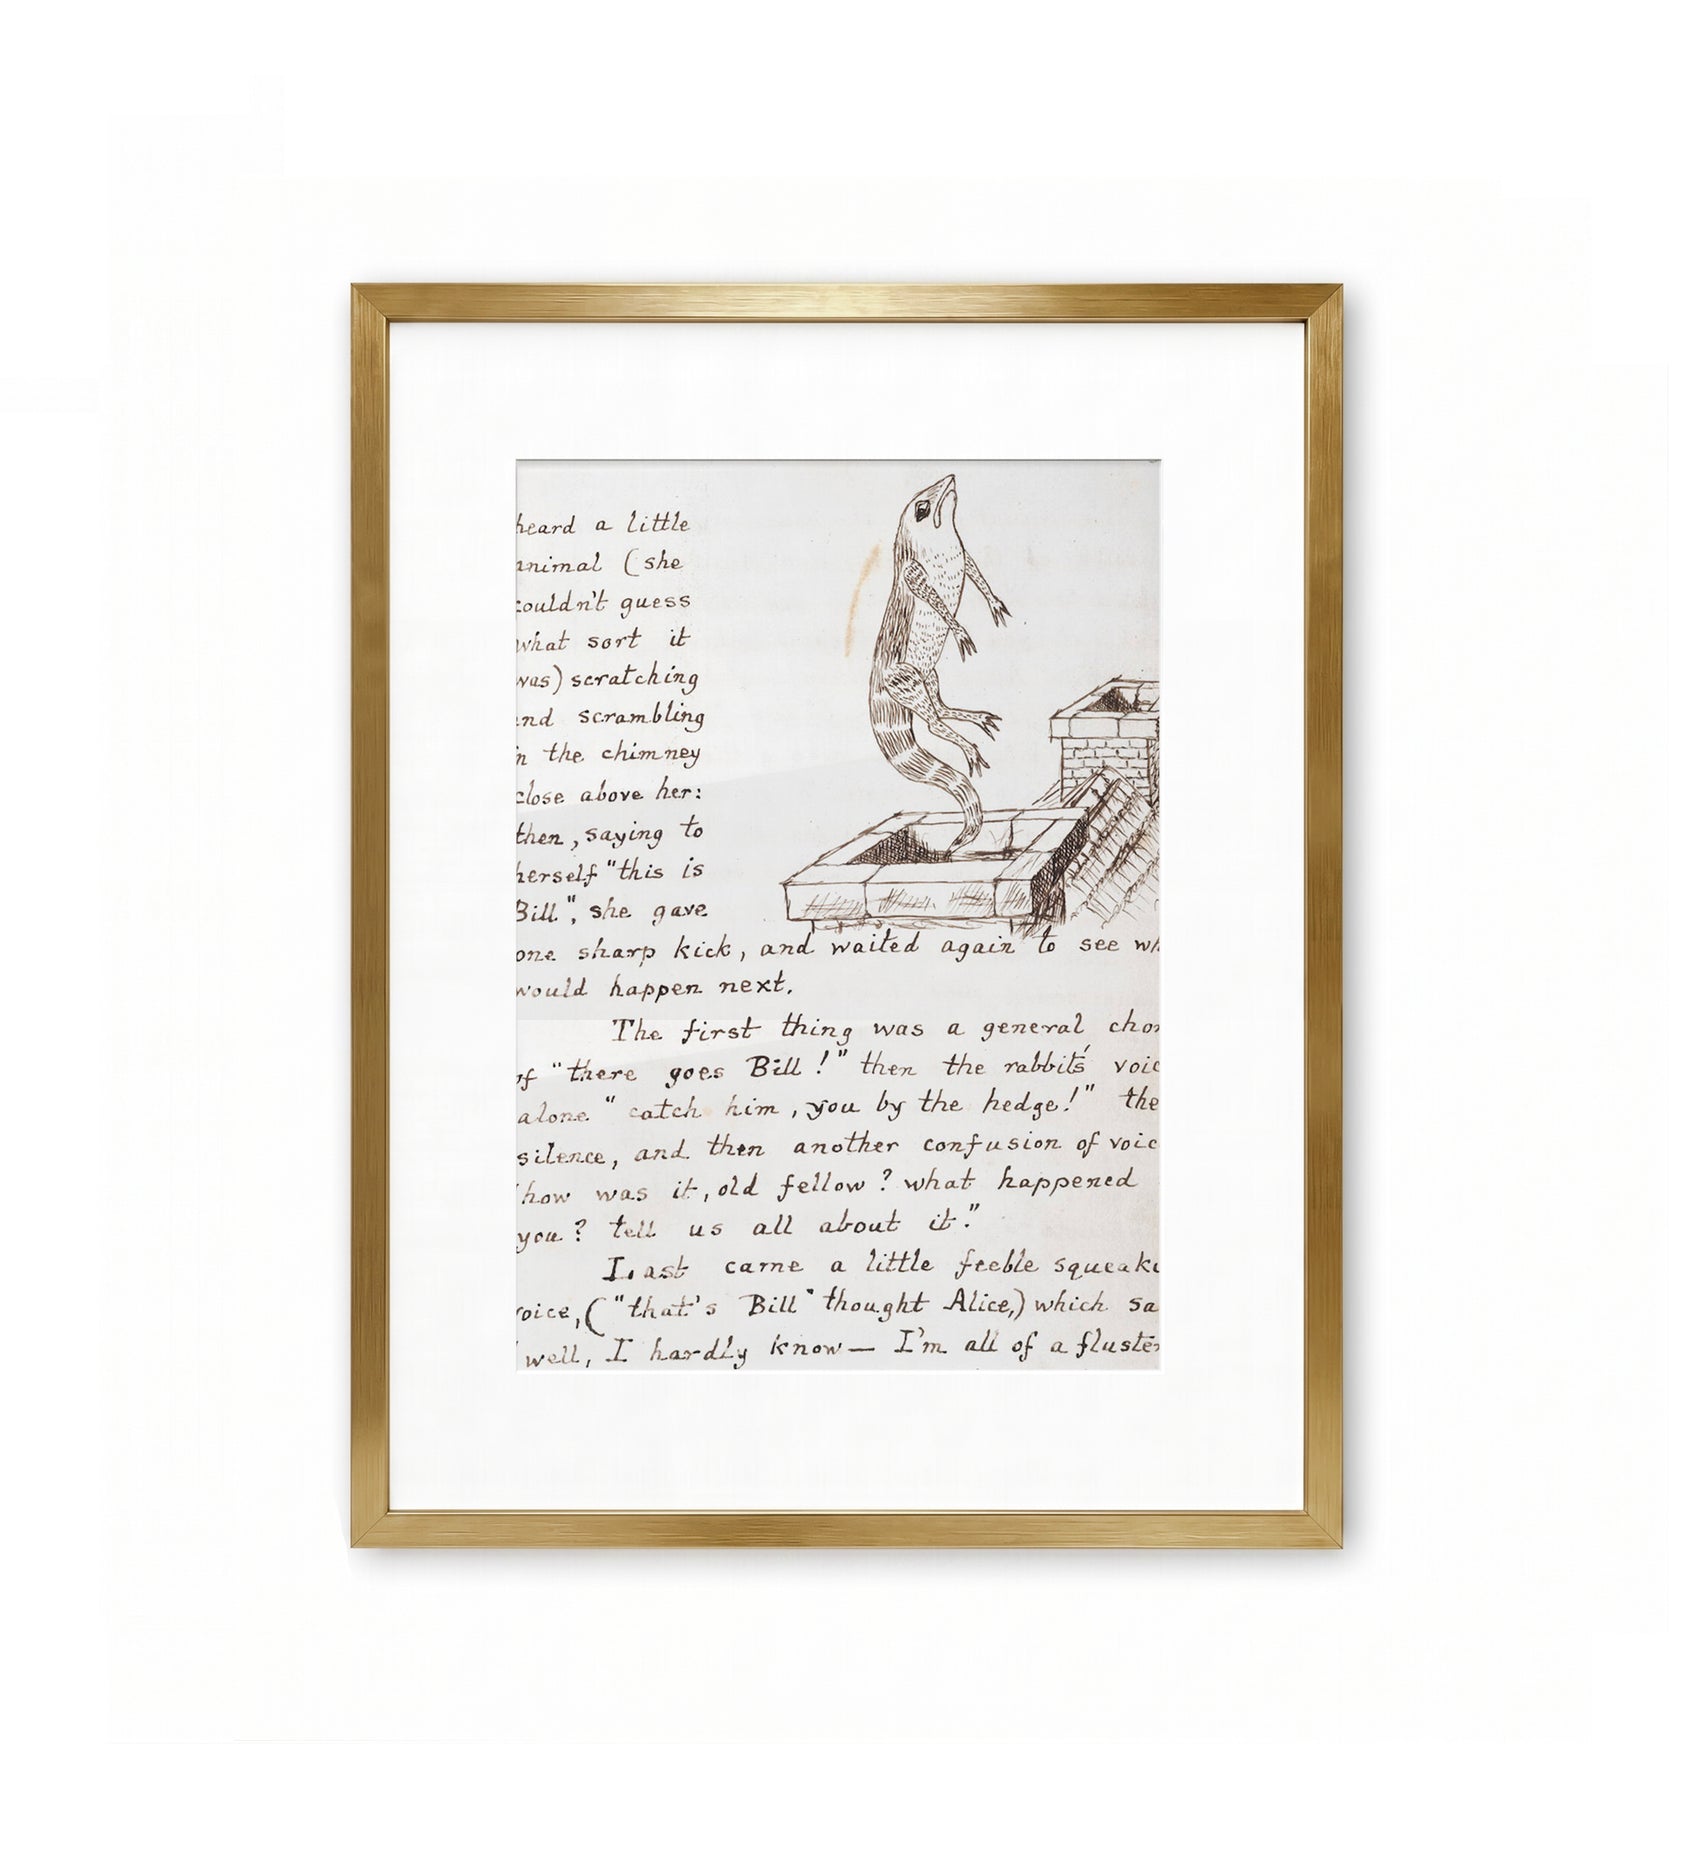 heard a little
animal (she
couldn't guess
what sort it
was) scratching
and scrambling
in the chimney
close above her:
then, saying to
herself "this is
Bill", she gave
one sharp kick, and waited again to see wh
would happen next.
The first thing was a general chor
of "there goes Bill!" then the rabbit's voic
alone "catch him, you by the hedge!" the
silence, and then another confusion of voic
"how was it, old fellow? what happened
you? tell us all about it."
Last came a little feeble squeaki
voice, ("that's Bill" thought Alice,) which sa
"well, I hardly know— I'm all of a fluster